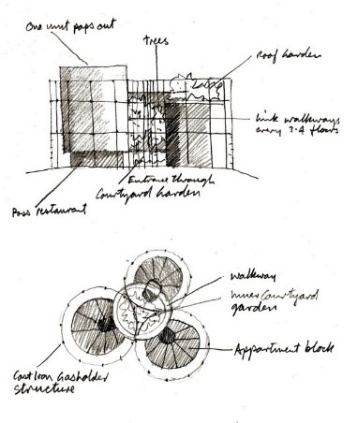 One unit pops out
trees
Roof Garden
Link walkways
every 3-4 floors
Entrance through
Courtyard Garden
Poss restaurant
Walkway
Inner Courtyard
garden
Appartment block
Cast Iron Gasholder
Structure